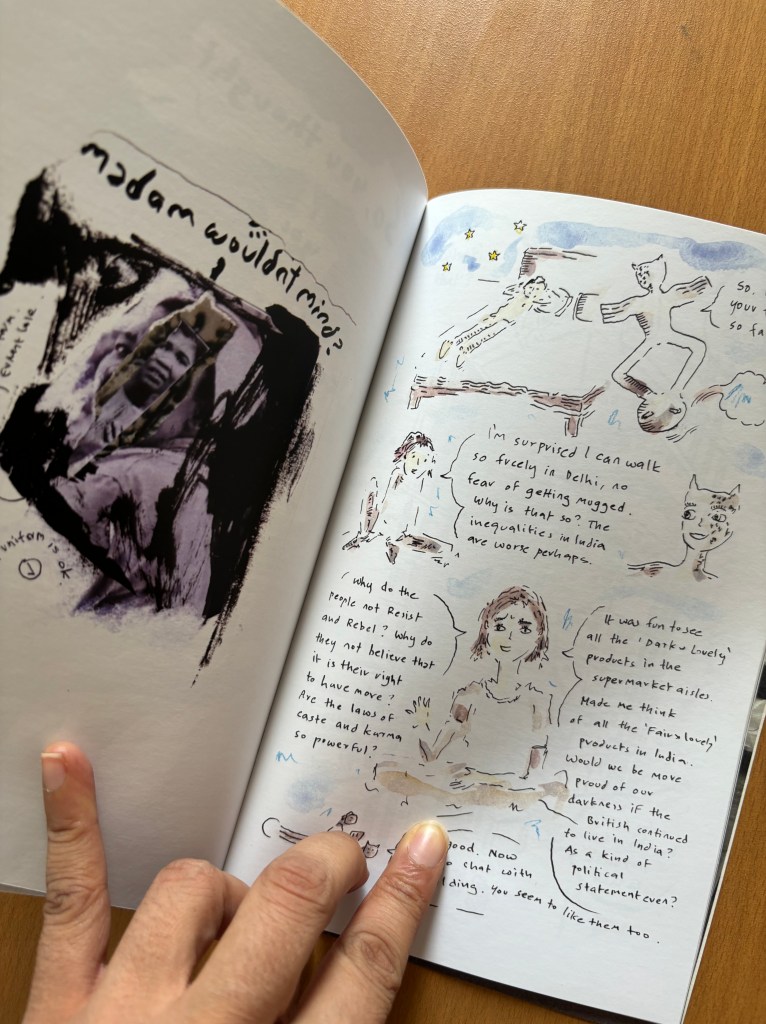 madam wouldn't mind?
uniform is ok
So,
your
so fa
I'm surprised I can walk
so freely in Delhi, no
fear of getting mugged.
Why is that so? The
inequalities in India
are worse perhaps.
Why do the
people not Resist
and Rebel? Why do
they not believe that
it is their right
to have more?
Are the laws of
caste and karma
so powerful?
It was fun to see
all the 'Dark & Lovely'
products in the
supermarket aisles.
Made me think
of all the 'Fair & lovely'
products in India.
Would we be more
proud of our
darkness if the
British continued
to live in India?
As a kind of
political
statement even?
good. Now
chat with
ding. You seem to like them too.